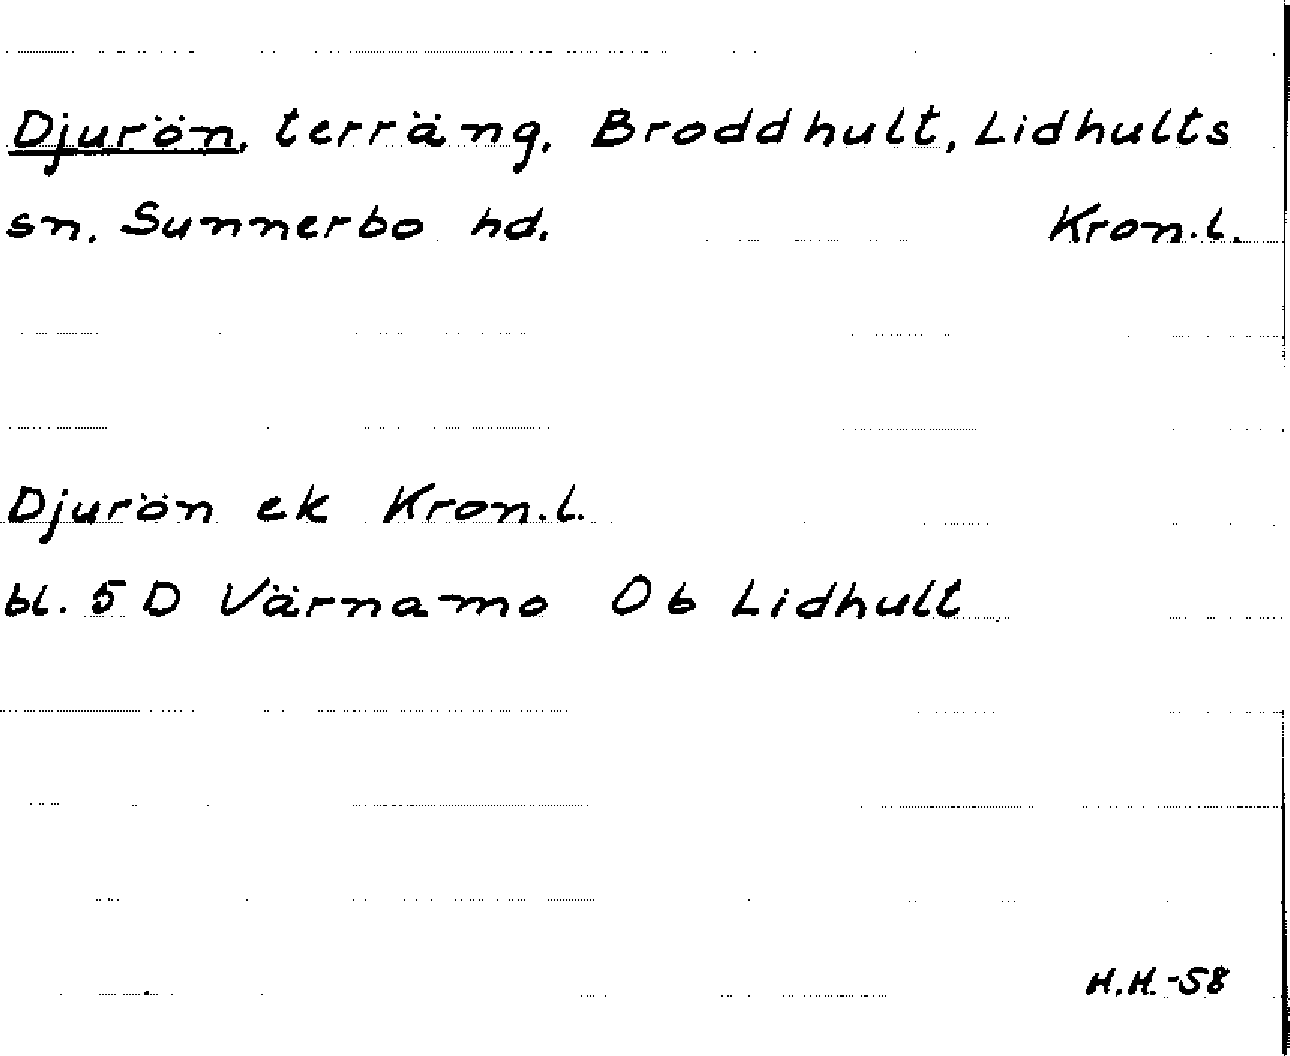 Djurön, terräng, Broddhult, Lidhults
sn. Sunnerbo hd. Kron.l.
Djurön ek Kron.l.
bl. 5 D Värnamo Ob Lidhult
H.H.-58